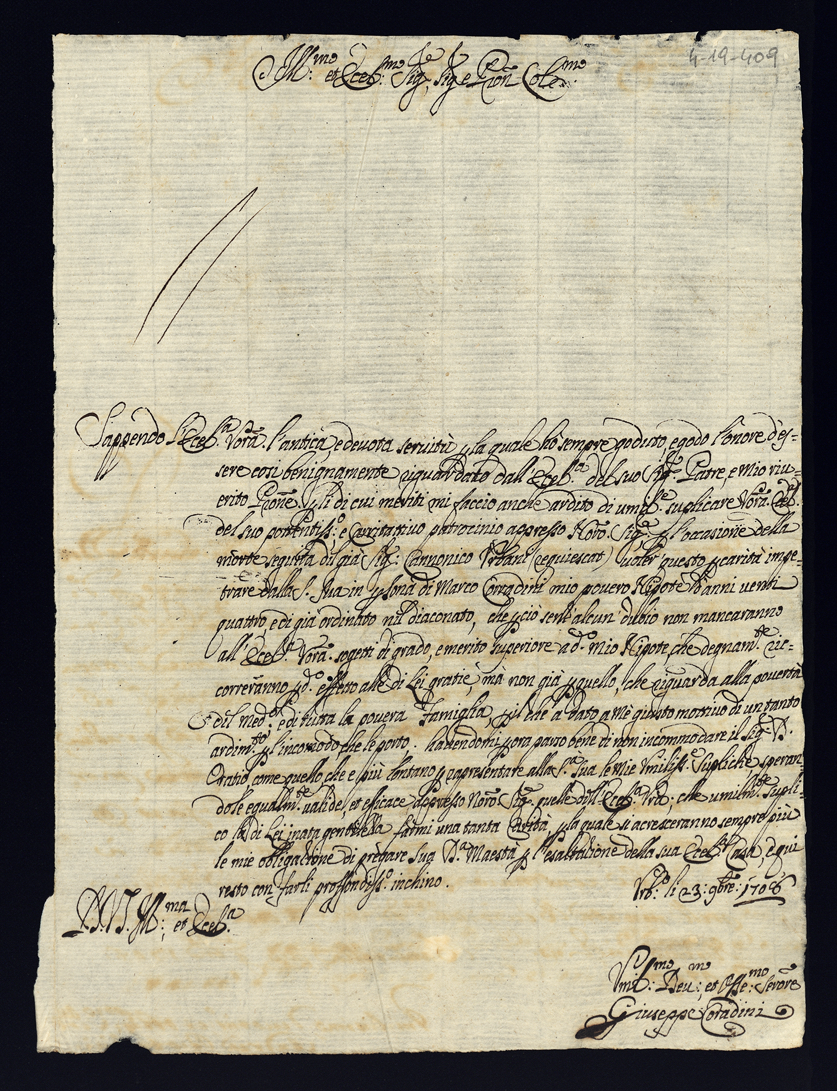 4-19-409
Ill:mo et Ecel:mo Sig:re, Sig:re e Pron Col:mo
Sappendo l'Ecel:a Vora. l'antica, e devota servitù p la quale ho sempre goduto, e godo l'onore d'es=
sere così benignamente riguardato dall'Ecel:a del suo Sig:re Patre, e mio riu=
erito Prone. p li di cui meriti mi faccio anche ardito di um:te suplicare Vora. Ecel:a
del suo pottentiss:o, e caritativo patrocinio appresso Nro. Sig:re p l'occasione della
morte seguita di già Sig:r Cannonico Urbani (requiescat) voler questo p carità impe=
trare dalla S. Sua in psona di Marco Corradini mio povero Nipote d'anni venti
quattro, e di già ordinato nel diaconato, che p ciò senz'alcun dubio non mancaranno
all'Ecel:a Vora. sogetti di grado, e merito superiore a d:o mio Nipote che degnam:te ric=
correranno p d:o effetto alle di Lei gratie, ma non già p quello, che riguarda alla povertà
del med:o, e di tutta la povera Famiglia, p il che a dato a me giusto motivo di un tanto
ardim:to p l'incomodo che le porto. havendomi p ora parso bene di non incommodare il Sig:r D.
Oratio come quello che è più lontano p rapresentare alla S:tà Sua le mie Umiliss:e Supliche speran=
dole equalm:te valide, et efficace appresso Nro. Sig:re quelle dell'Ecel:a Vra, che umilm:te supli=
co la di Lei inata gentilezza farmi una tanta Carità p la quale si acresceranno sempre più
le mie obligazione di pregare Sua D:a Maestà p l'esaltazione della sua Ecel:a Casa, e qui
resto con farli proffondiss:o inchino.
Urb:o li 23: 9bre: 1706
D.V.S. Ill:ma, et Ecel:a
Umil:mo Dev:mo, et Obbe:mo Servore
Giuseppe Coradini